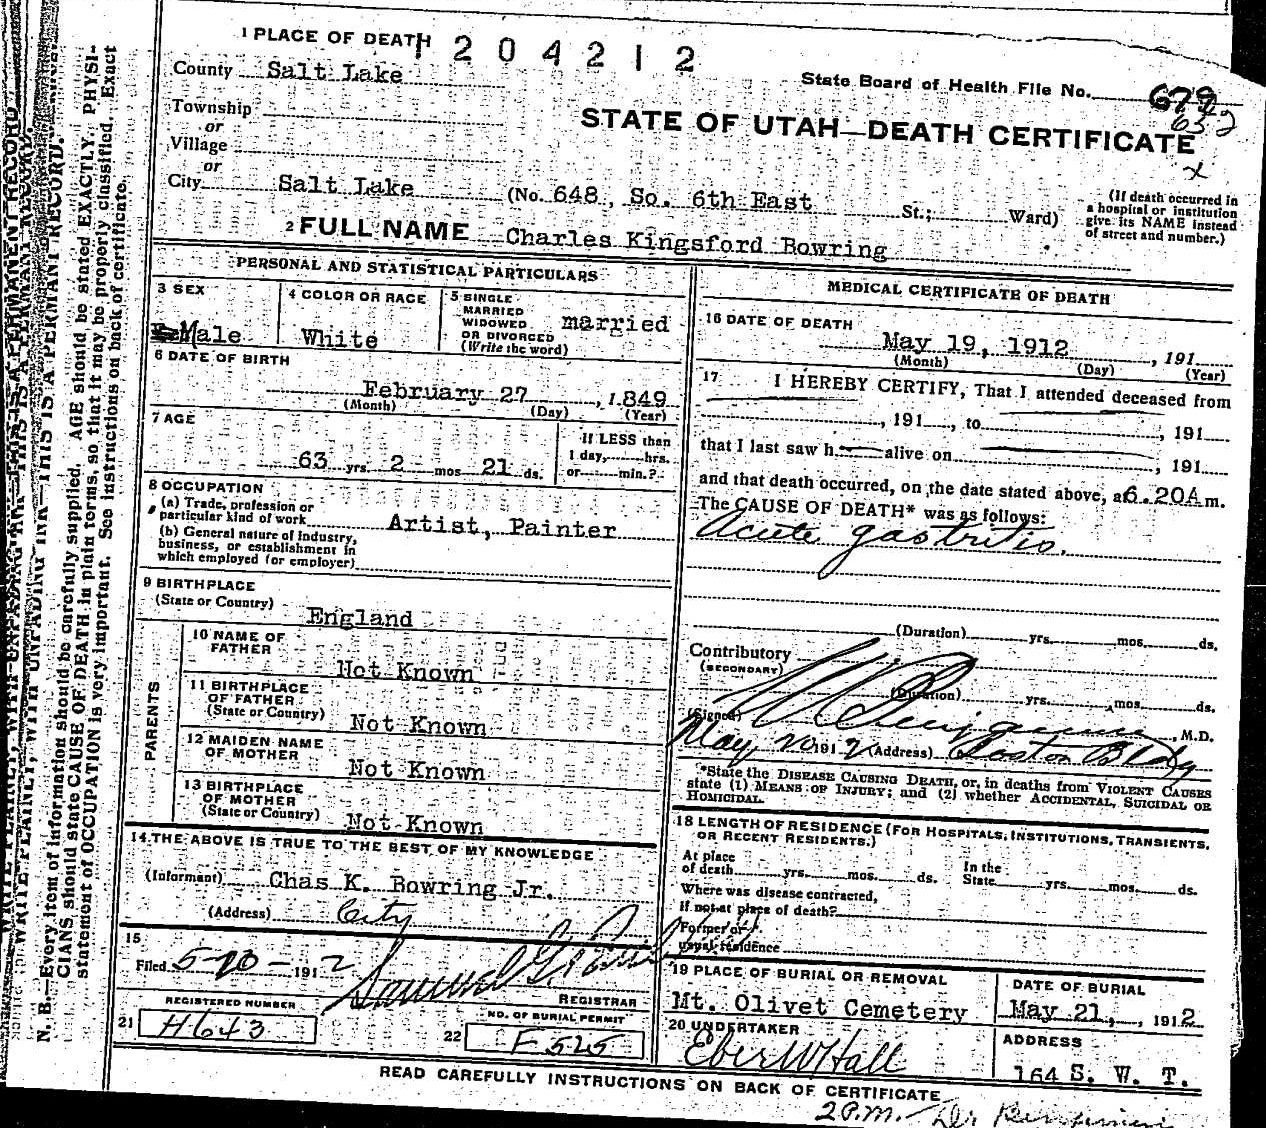 WRITE PLAINLY, WITH UNFADING INK—THIS IS A PERMANENT RECORD.
N. B.—Every item of information should be carefully supplied. AGE should be stated EXACTLY. PHYSI-
CIANS should state CAUSE OF DEATH in plain terms, so that it may be properly classified. Exact
statement of OCCUPATION is very important. See instructions on back of certificate.
1 PLACE OF DEATH
1204212
County Salt Lake
State Board of Health File No. 679
632
Township
or
STATE OF UTAH—DEATH CERTIFICATE
Village
or
x
City Salt Lake (No. 648, So. 6th East St.; Ward)
(If death occurred in
a hospital or institution
give its NAME instead
of street and number.)
2 FULL NAME Charles Kingsford Bowring
PERSONAL AND STATISTICAL PARTICULARS
3 SEX
Male
4 COLOR OR RACE
White
5 SINGLE
MARRIED
WIDOWED
OR DIVORCED
(Write the word)
married
6 DATE OF BIRTH
February 27, 1849
(Month) (Day) (Year)
7 AGE
63 yrs. 2 mos. 21 ds.
If LESS than
1 day, hrs.
or min.?
8 OCCUPATION
(a) Trade, profession or
particular kind of work Artist, Painter
(b) General nature of Industry,
business, or establishment in
which employed (or employer)
9 BIRTHPLACE
(State or Country) England
PARENTS
10 NAME OF
FATHER Not Known
11 BIRTHPLACE
OF FATHER
(State or Country) Not Known
12 MAIDEN NAME
OF MOTHER Not Known
13 BIRTHPLACE
OF MOTHER
(State or Country) Not Known
14 THE ABOVE IS TRUE TO THE BEST OF MY KNOWLEDGE
(Informant) Chas K. Bowring Jr.
(Address) City
15
Filed 5-20-1912 Samuel G.
REGISTRAR
REGISTERED NUMBER
21 H643
NO. OF BURIAL PERMIT
22 F 525
MEDICAL CERTIFICATE OF DEATH
16 DATE OF DEATH
May 19, 1912, 191
(Month) (Day) (Year)
17 I HEREBY CERTIFY, That I attended deceased from
, 191 , to , 191
that I last saw h alive on , 191
and that death occurred, on the date stated above, at 6.20A m.
The CAUSE OF DEATH* was as follows:
Acute gastritis.
(Duration) yrs. mos. ds.
Contributory
(SECONDARY)
(Duration) yrs. mos. ds.
(Signed) Benjamin, M.D.
May 20 1912 (Address) Boston Bldg
*State the DISEASE CAUSING DEATH, or, in deaths from VIOLENT CAUSES
state (1) MEANS OF INJURY; and (2) whether ACCIDENTAL, SUICIDAL OR
HOMICIDAL.
18 LENGTH OF RESIDENCE (FOR HOSPITALS, INSTITUTIONS, TRANSIENTS,
OR RECENT RESIDENTS.)
At place
of death yrs. mos. ds.
In the
State yrs. mos. ds.
Where was disease contracted,
If not at place of death?
Former or
usual residence
19 PLACE OF BURIAL OR REMOVAL
Mt. Olivet Cemetery
DATE OF BURIAL
May 21, , 1912
20 UNDERTAKER
Eber W Hall
ADDRESS
164 S. W. T.
READ CAREFULLY INSTRUCTIONS ON BACK OF CERTIFICATE
2 P.M. - Dr Benjamin